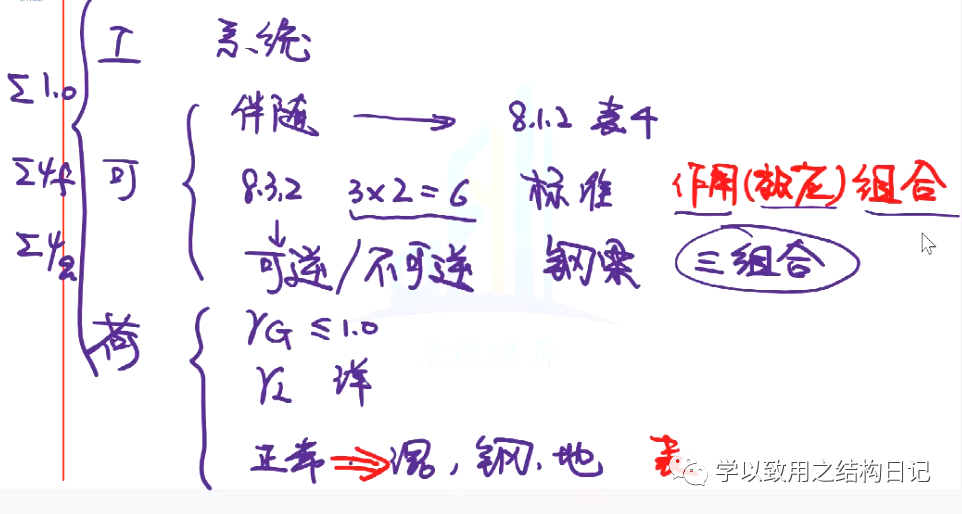 工 系统
Σ1.0
伴随 → 8.1.2 表4
Σψf 可 8.3.2 3×2=6 标准 作用(效应)组合
Σψq 可逆/不可逆 钢梁 三组合
荷 γG ≤1.0
γL 详
正常 ⇒ 混,钢、地 表
学以致用之结构日记